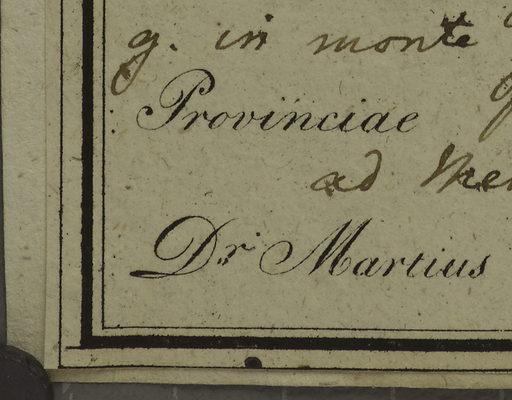 g. in monte
Provinciae
ad
Dr. Martius